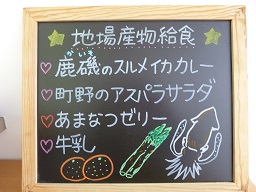 地場産物給食
かいそ
鹿磯のスルメイカカレー
町野のアスパラサラダ
あまなつゼリー
牛乳